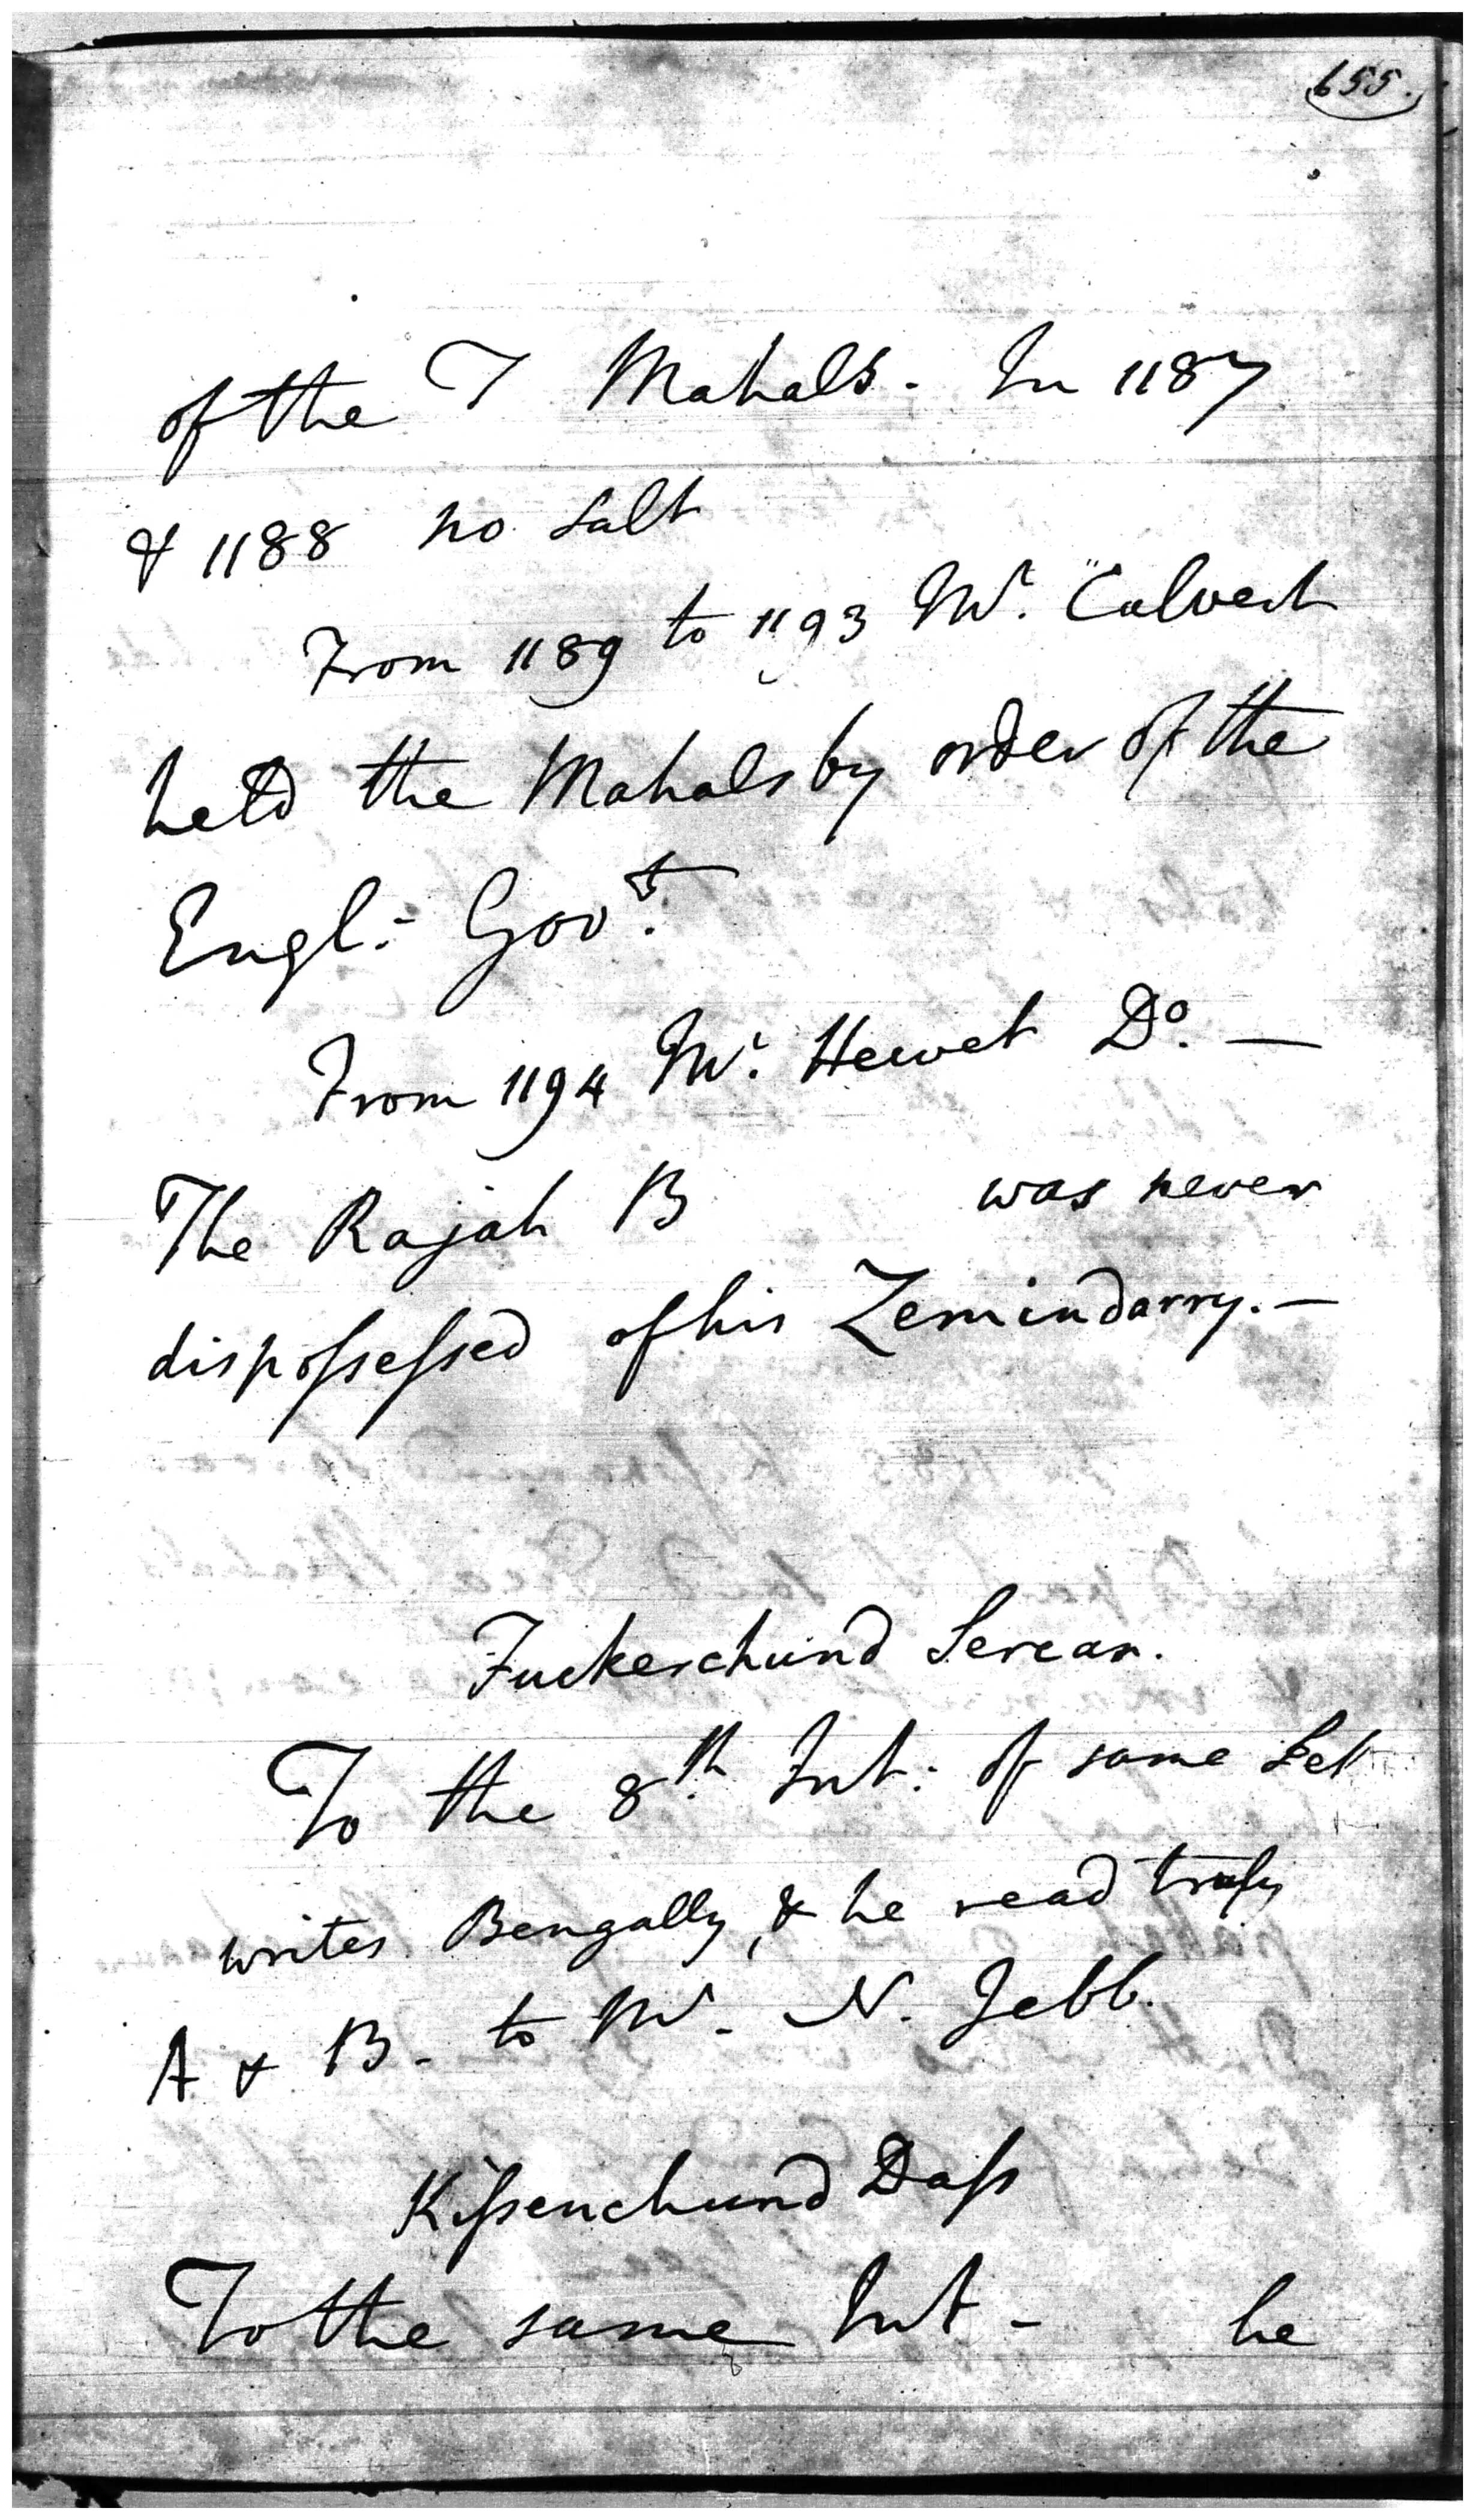 655.
of the T Mahals. In 1187
& 1188 no salt
From 1189 to 1193 Mr. Calvert
held the Mahals by order of the
Engl: Govt.
From 1194 Mr. Hewet Do. —
The Rajah B was never
dispossessed of his Zemindarry. —
Fuckerchund Sercar.
To the 8th. Int: of same Set
writes Bengally, & he read truly
A & B. to Mr. N. Jebb.
Kissenchund Dass
To the same Int - he